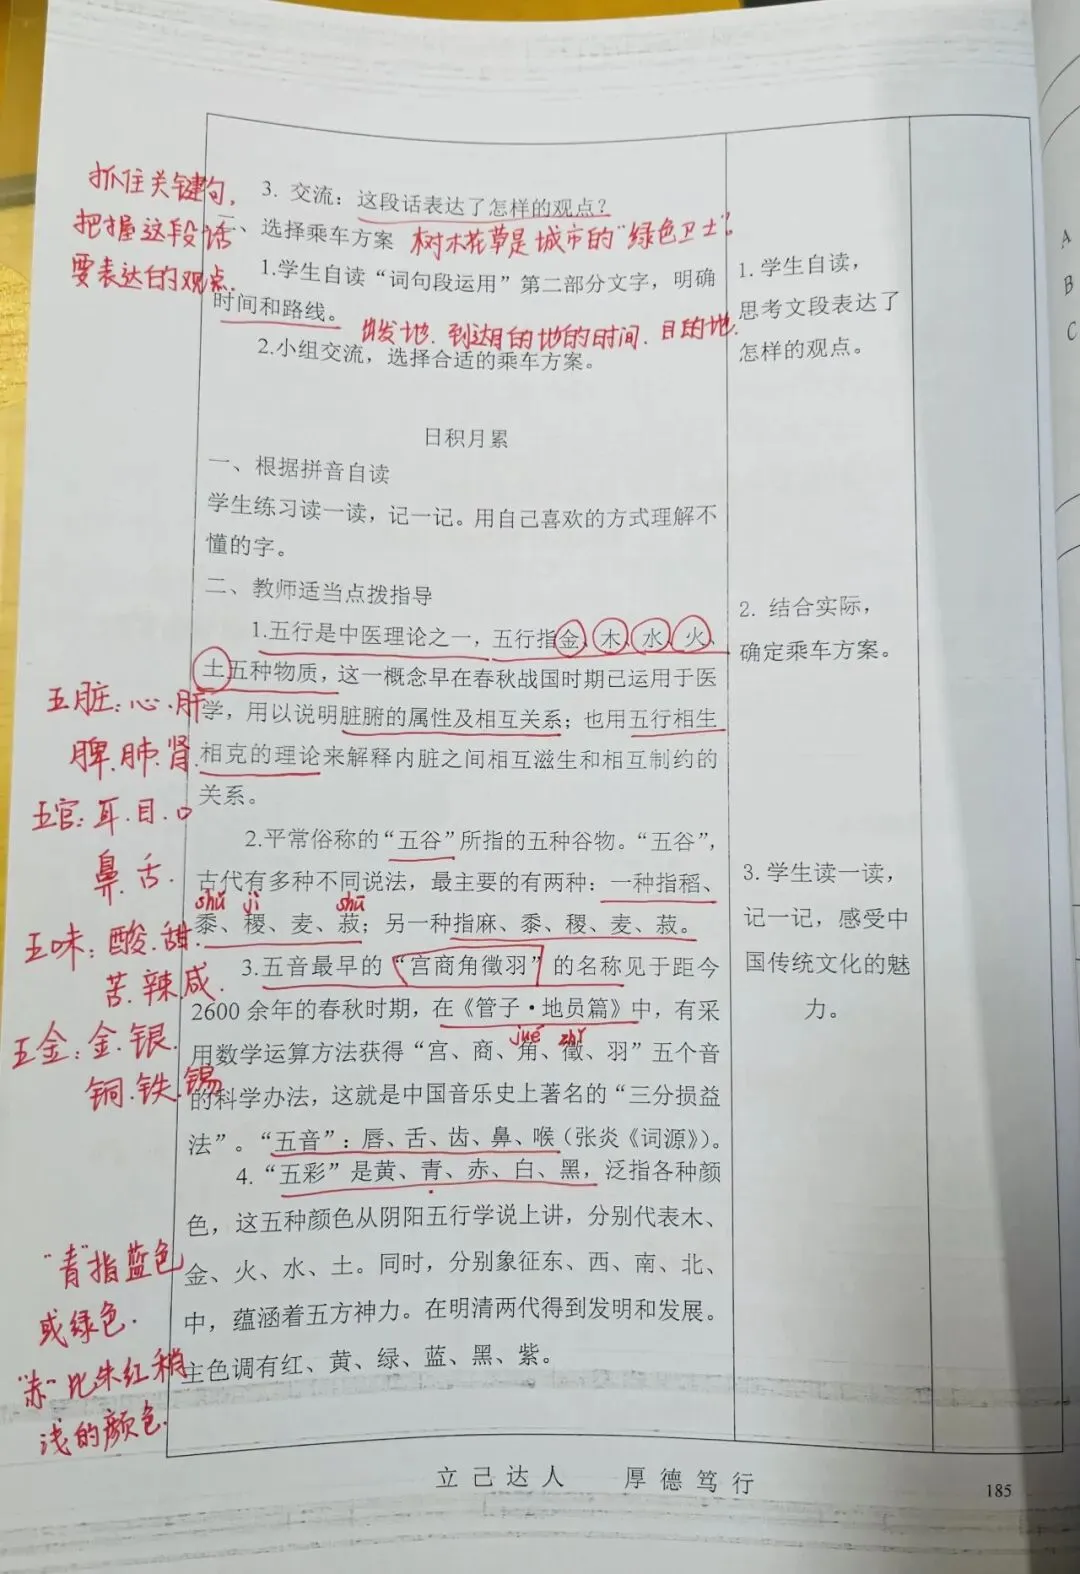 抓住关键句,
把握这段话
要表达的观点.
3. 交流：这段话表达了怎样的观点？
二、选择乘车方案
树木花草是城市的“绿色卫士”。
1.学生自读“词句段运用”第二部分文字，明确
时间和路线。
出发地.到达目的地的时间.目的地.
2.小组交流，选择合适的乘车方案。
日积月累
一、根据拼音自读
学生练习读一读，记一记。用自己喜欢的方式理解不
懂的字。
二、教师适当点拨指导
1.五行是中医理论之一，五行指金、木、水、火、
土五种物质，这一概念早在春秋战国时期已运用于医
学，用以说明脏腑的属性及相互关系；也用五行相生
相克的理论来解释内脏之间相互滋生和相互制约的
关系。
五脏:心.肝
脾.肺.肾.
五官:耳.目.口
鼻.舌.
五味:酸.甜.
苦.辣.咸.
五金:金.银.
铜.铁.锡
2.平常俗称的“五谷”所指的五种谷物。“五谷”，
古代有多种不同说法，最主要的有两种：一种指稻、
shǔ jì shū
黍、稷、麦、菽；另一种指麻、黍、稷、麦、菽。
3.五音最早的“宫商角徵羽”的名称见于距今
2600余年的春秋时期，在《管子·地员篇》中，有采
jué zhǐ
用数学运算方法获得“宫、商、角、徵、羽”五个音
的科学办法，这就是中国音乐史上著名的“三分损益
法”。“五音”：唇、舌、齿、鼻、喉（张炎《词源》）。
4.“五彩”是黄、青、赤、白、黑，泛指各种颜
色，这五种颜色从阴阳五行学说上讲，分别代表木、
金、火、水、土。同时，分别象征东、西、南、北、
中，蕴涵着五方神力。在明清两代得到发明和发展。
主色调有红、黄、绿、蓝、黑、紫。
“青”指蓝色
或绿色.
“赤”比朱红稍
浅的颜色.
1.学生自读，
思考文段表达了
怎样的观点。
2. 结合实际，
确定乘车方案。
3.学生读一读，
记一记，感受中
国传统文化的魅
力。
立己达人 厚德笃行
185
A
B
C